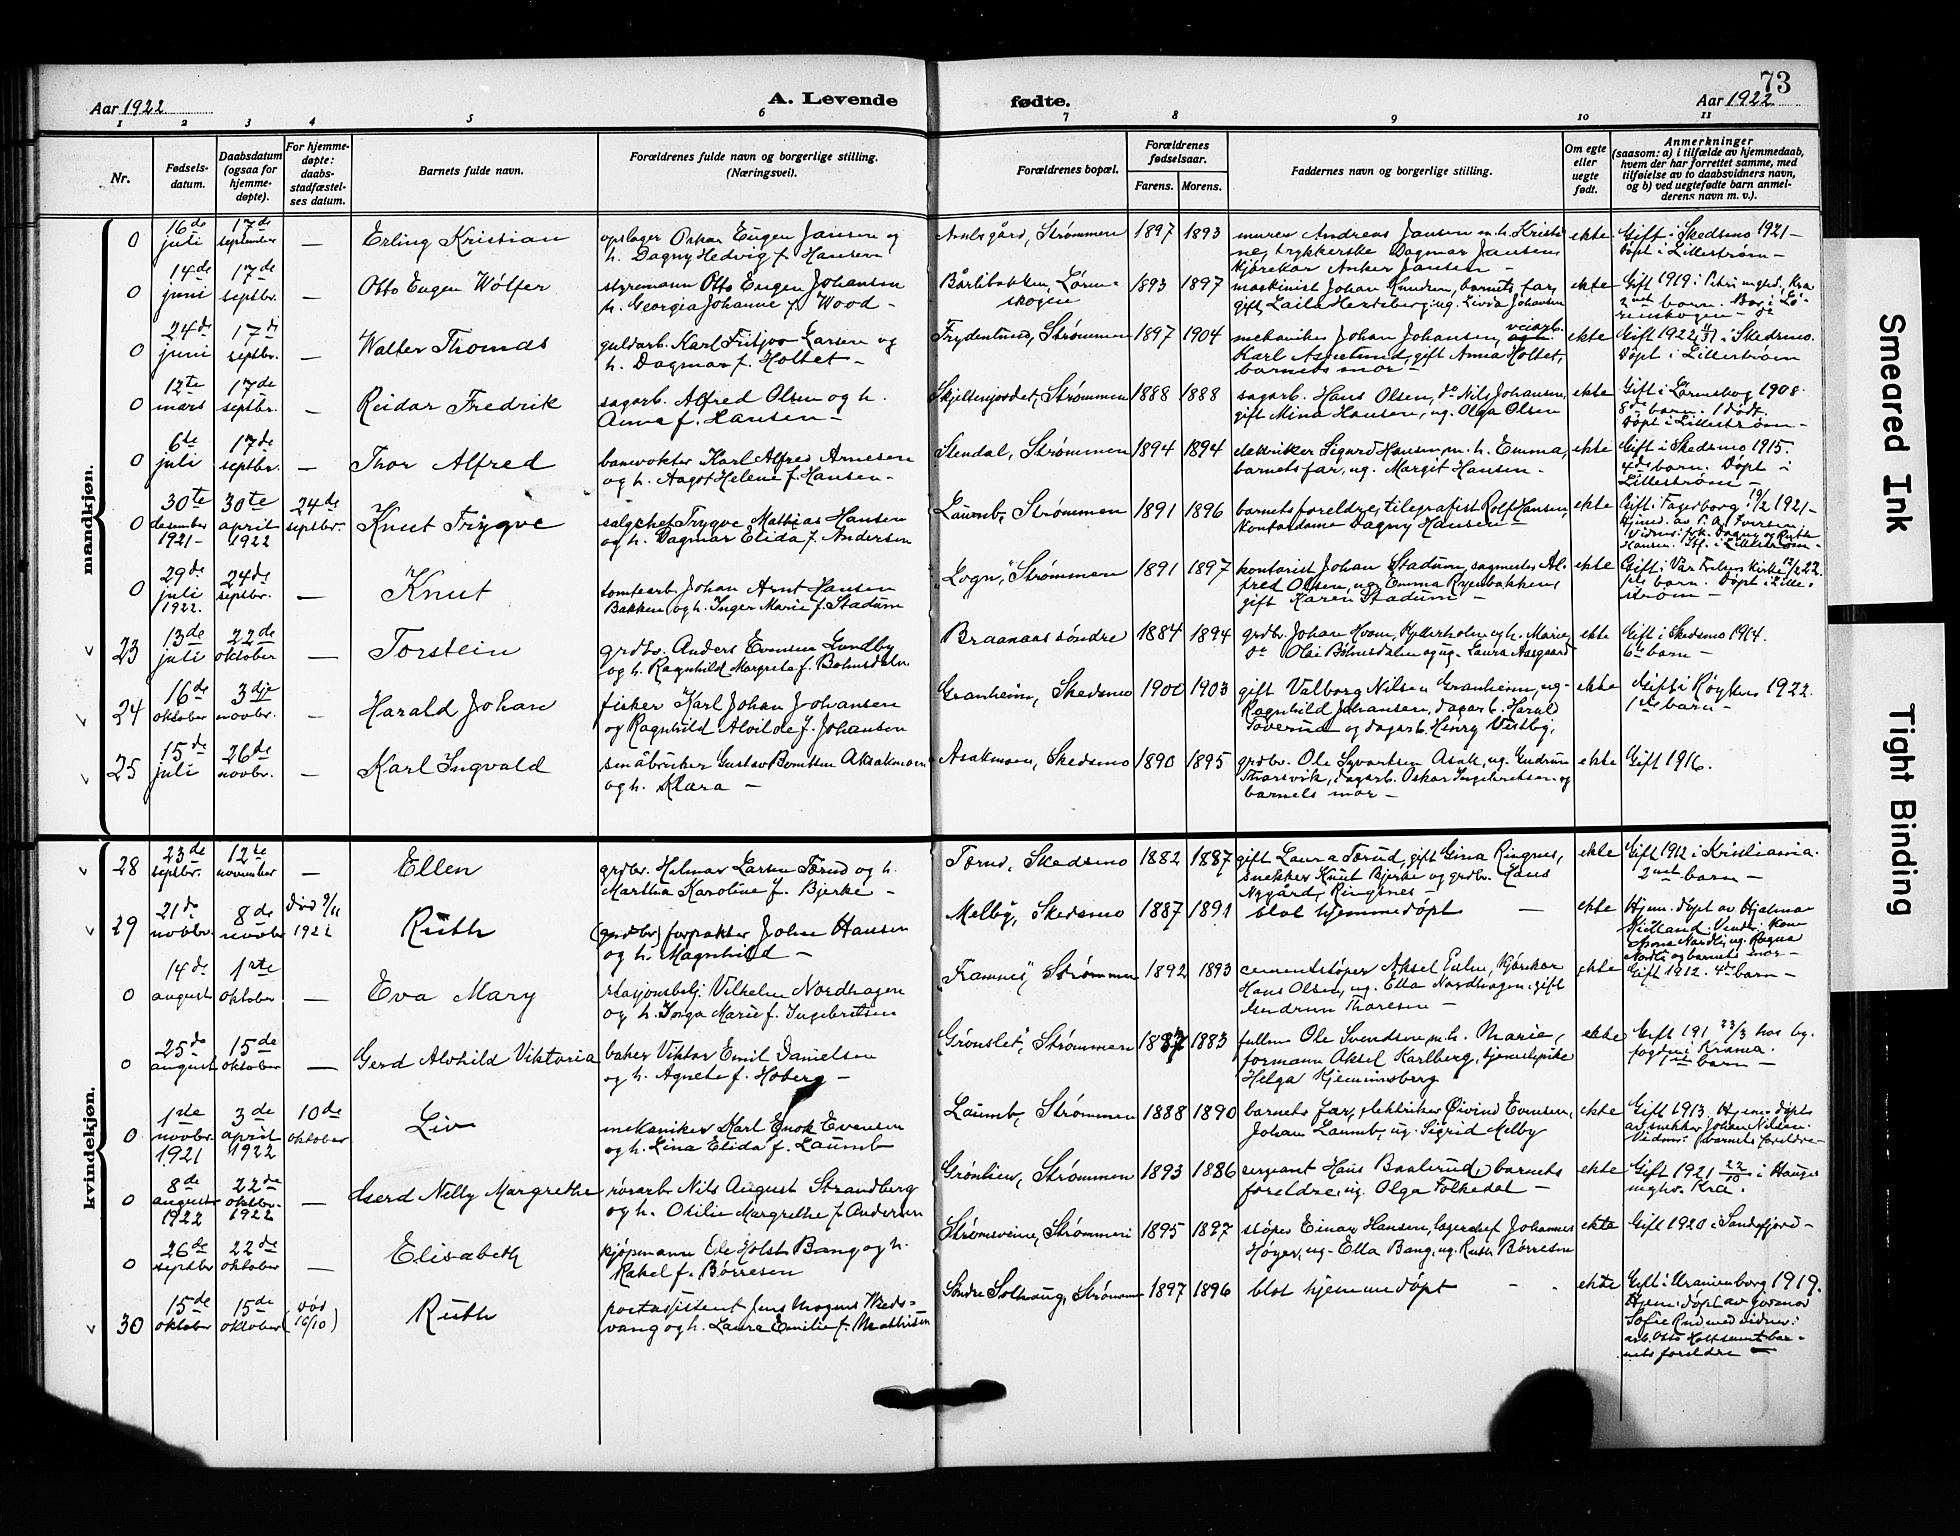 73
Aar 1922
A. Levende
fødte.
Aar 1922
1 2 3 4 5 6 7 8 9 10 11
Nr.
Fødsels-
datum.
Daabsdatum
(ogsaa for
hjemme-
døpte).
For hjemme-
døpte:
daabs-
stadfæstel-
ses datum.
Barnets fulde navn.
Forældrenes fulde navn og borgerlige stilling.
(Næringsvei).
Forældrenes bopæl.
Forældrenes
fødselsaar.
Farens. Morens.
Faddernes navn og borgerlige stilling.
Om egte
eller
uegte
født.
Anmerkninger
(saasom: a) i tilfælde av hjemmedaab,
hvem der har forrettet samme, med
tilføielse av to daabsvidners navn,
og b) ved uegtefødte barn anmel-
derens navn m. v.).
mandkjøn.
0
16de juli
17de september
—
Erling Kristian
opslager Oskar Eugen Jansen og
h. Dagny Hedvig f. Hansen
Strømmen
1897 1893
murer Andreas Jansen m. h. Kristi
ne, trykkerske Dagmar Jansen,
kjørekar Anker Jansen —
ekte
Gift i Skedsmo 1921 —
Døpt i Lillestrøm —
0
14de juni
17de septbr.
—
Otto Eugen Wölfer
styrmann Otto Eugen Johansen
h. Georgia Johanne f. Wood —
Bårlibakken, Løren-
skogen
1893 1897
maskinist Johan Knudsen, barnets far,
gift Laila Herteberg, ug. Livia Johansen
ekte
Gift 1919 i Petri mghd. Kra
2net barn. Bor i Lø-
renskogen —
0
24de juni
17de septbr.
—
Walter Thomas
gullarb. Karl Fritjov Larsen og
h. Dagmar f. Holtet —
Frydenlund, Strømmen
1897 1904
mekaniker Johan Johansen, veiarb.
Karl Aaselund, gift Anna Holtet,
barnets mor —
ekte
Gift 1922 i Skedsmo.
Døpt i Lillestrøm
0
12te mars
17de septbr.
—
Reidar Fredrik
sagarb. Alfred Olsen og h.
Anna f. Hansen —
Skjettenjordet, Strømmen
1888 1888
sagarb. Hans Olsen, do Nils Johansen,
gift Mina Hansen, ug. Olga Olsen
ekte
Gift i Lørenskog 1908.
8de barn. 1 dødt.
Døpt i Lillestrøm —
0
6te juli
17de septbr.
—
Thor Alfred
banevokter Karl Alfred Arnesen
og h. Aagot Helene f. Hansen —
Stendal, Strømmen
1894 1894
elektriker Sigurd Hansen, m. h. Emma,
barnets far, ug. Margit Hansen —
ekte
Gift i Skedsmo 1915.
4de barn. Døpt i
Lillestrøm —
0
30te desember 1921 —
30te april 1922
24de septbr.
Knut Trygve
salgchef Trygve Mathias Hansen
og h. Dagmar Elida f. Andersen
Laumb, Strømmen
1891 1896
barnets foreldre, telegrafist Rolf Hansen,
kontordame Dagny Hansen —
ekte
Gift i Fagerborg 19/2 1921 —
Hjemd. av
Vidner: frk. Dagny og Ruth
Hansen. Stf. i Lillestrøm —
0
29de juli 1922.
24de septbr.
—
Knut
tomtearb. Johan Arnt Hansen
Bakken og h. Inger Marie f. Stadum
„Logn", Strømmen
1891 1897
kontorist Johan Stadum, sagmester Al-
fred Olsen, ug. Emma Ryenbakken,
gift Karen Stadum —
ekte
Gift i Vår Frelsers kirke 1922.
1ste barn. Døpt i Lille-
strøm —
23
13de juli
22de oktober
—
Torstein
grdbr. Anders Evensen Lundby
og h. Ragnhild Margrete f. Bohnsdalen
Braanaas søndre
1884 1894
grdbr. Johan Hvam, Hellerholm og h. Marie,
do Olai Böhnsdalen og ug. Laura Aasgaard
ekte
Gift i Skedsmo 1914.
6te barn —
24
16de oktober
3dje novbr.
—
Harald Johan
fisker Karl Johan Johansen
og Ragnhild Alvilde f. Johansen
Granheim, Skedsmo
1900 1903
gift Valborg Nilsen Granheim, ug.
Ragnhild Johansen, dagarb. Harald
Toverud og dagarb. Henry Vestby,
ekte
Gift i Røyken 1922.
1ste barn —
25
15de juli
26de novbr.
—
Karl Ingvald
småbruker Gustav Berntsen Aksakmoen
og h. Klara —
Asakmoen, Skedsmo
1890 1895
grdbr. Ole Syvertsen Asak, ug. Gudrun
Thorsvik, dagarb. Oskar Ingebretsen og
barnets mor —
ekte
Gift 1916.
kvindekjøn.
28
23de septbr.
12te november
—
Ellen
grdbr. Helmar Larsen Tærud og h.
Martha Karoline f. Bjerke —
Tærud, Skedsmo
1882 1887
gift Laura Tærud, gift Gina Ringnes,
snekker Knut Bjerke og grdbr. Hans
Nygård, Ringnes —
ekte
Gift 1912 i Kristiania.
2net barn —
29
21de novbr.
8de novbr
Død 9/11 1922
Ruth
(grdbr) forpakter John Hansen
og h. Magnhild —
Melby, Skedsmo
1887 1891
blot hjemmedøpt —
ekte
Hjem. døpt av Hjalmar
Midtland. Vidn: kone
Anna Nordli, ug. Ragna
Nordli og barnets mor —
0
14de august
1ste oktober
—
Eva Mary
stasjonsbetj. Vilhelm Nordhagen
og h. Inga Marie f. Ingebretsen
„Framnes", Strømmen
1892 1893
cementstøper Aksel Holm, kjørekar
Hans Olsen, ug. Ella Nordhagen, gift
Gudrun Thoresen —
ekte
Gift 1912. 4de barn —
0
25de august
15de oktober
—
Gerd Alvhild Viktoria
baker Viktor Emil Danielsen
og h. Agnete f. Hoberg —
„Grønslet", Strømmen
1887 1883
Ole Svendsen m. h. Marie,
formann Aksel Karlberg, tjenestepike
Helga Hjemmsberg
ekte
Gift 191 23/3 hos by-
fogden i Krania.
barn —
0
1ste novbr. 1921
3de april 1922
10de oktober
Liv
mekaniker Karl Enok Evensen
og h. Lina Elida f. Laumb
Laumb, Strømmen
1888 1890
barnets far, elektriker Øivind Evensen,
Johan Laumb, ug. Sigrid Melby
ekte
Gift 1913. Hjem. døpt
av snekker Johan Nilsen.
Vidner: barnets foreldre —
0
8de august 1922
22de oktbr. 1922
—
Gerd Nelly Margrethe
rørarb. Nils August Strandberg
og h. Otilie Margrethe f. Andersen
Grønlien, Strømmen
1893 1886
sergeant Hans Baalerud, barnets
foreldre, ug. Olga Folkedal —
ekte
Gift 1921 22/10 i Hauges
mghv. Kra.
0
26de septbr
22de oktober
—
Elisabeth
kjøpmann Ole Holst Bang og h.
Rakel f. Børresen
Strømsveien, Strømmen
1895 1897
støper Einar Hansen, lagerchef Johannes
Høyer, ug. Ella Bang, ug. Ruth Børresen
ekte
Gift 1920 i Sandefjord —
30
15de oktober
15de oktober
(død 16/10)
Ruth
postassistent Jens Mogens Weds-
vang og h. Laura Emilie f. Mathisen
Søndre Solhaug, Strømmen
1897 1896
blot hjemmedøpt — -
ekte
Gift i Uranienborg 1919.
Hjem. døpt av jormor
Sofie Rud med vidner:
arb. Otto Holt samt bar-
nets foreldre —
Smeared Ink
Tight Binding